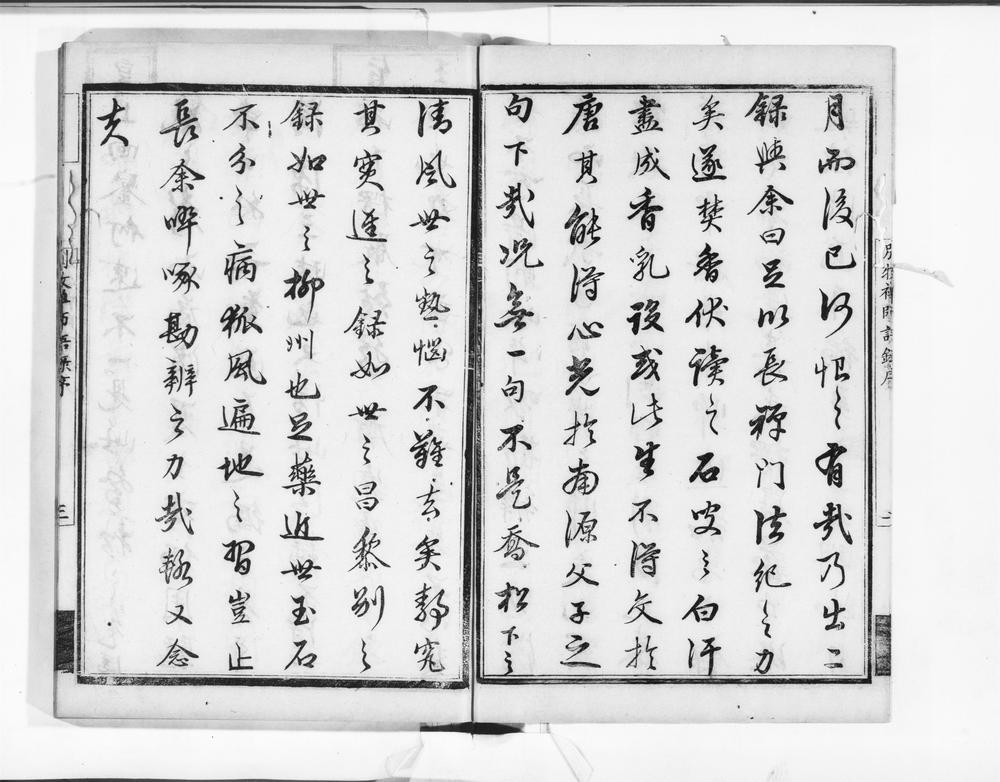 月而後已何恨之有哉乃出二
録與余曰足以長禪門法紀之力
矣遂焚香伏讀之石叟之白汗
盡成香乳設或此生不得交於
唐其能得心光於南源父子之
句下哉況無一句不是喬松下之
清風世之熱惱不難去矣静究
其實進之録如世之昌黎別之
録如世之柳州也足藥近世玉石
不分之病狐風遍地之習豈止
長余啐啄勘辨之力哉輅又念
夫
別牧禪師語録序